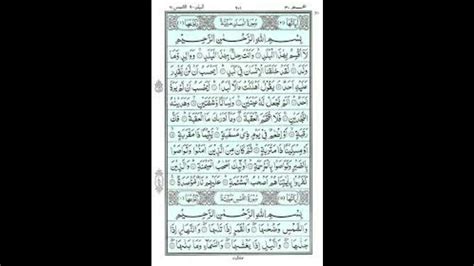 سُورَةُ الْبَلَدِ مَكِّيَّةٌ
بِسْمِ اللّٰهِ الرَّحْمٰنِ الرَّحِيْمِ
لَاۤ اُقْسِمُ بِهٰذَا الْبَلَدِ ۝ وَاَنْتَ حِلٌّۢ بِهٰذَا الْبَلَدِ ۝ وَوَالِدٍ
وَّمَا وَلَدَ ۝ لَقَدْ خَلَقْنَا الْاِنْسَانَ فِيْ كَبَدٍ ۝ اَيَحْسَبُ اَنْ لَّنْ يَّقْدِرَ عَلَيْهِ
اَحَدٌ ۝ يَقُوْلُ اَهْلَكْتُ مَالًا لُّبَدًا ۝ اَيَحْسَبُ اَنْ لَّمْ يَرَهٗۤ
اَحَدٌ ۝ اَلَمْ نَجْعَلْ لَّهٗ عَيْنَيْنِ ۝ وَلِسَانًا وَّشَفَتَيْنِ ۝ وَهَدَيْنٰهُ
النَّجْدَيْنِ ۝ فَلَا اقْتَحَمَ الْعَقَبَةَ ۝ وَمَاۤ اَدْرٰىكَ مَا الْعَقَبَةُ ۝ فَكُّ
رَقَبَةٍ ۝ اَوْ اِطْعٰمٌ فِيْ يَوْمٍ ذِيْ مَسْغَبَةٍ ۝ يَّتِيْمًا ذَا مَقْرَبَةٍ ۝
اَوْ مِسْكِيْنًا ذَا مَتْرَبَةٍ ۝ ثُمَّ كَانَ مِنَ الَّذِيْنَ اٰمَنُوْا وَتَوَاصَوْا
بِالصَّبْرِ وَتَوَاصَوْا بِالْمَرْحَمَةِ ۝ اُولٰٓئِكَ اَصْحٰبُ الْمَيْمَنَةِ ۝ وَالَّذِيْنَ
كَفَرُوْا بِاٰيٰتِنَا هُمْ اَصْحٰبُ الْمَشْـَٔمَةِ ۝ عَلَيْهِمْ نَارٌ مُّؤْصَدَةٌ ۝
سُورَةُ الشَّمْسِ مَكِّيَّةٌ
بِسْمِ اللّٰهِ الرَّحْمٰنِ الرَّحِيْمِ
وَالشَّمْسِ وَضُحٰىهَا ۝ وَالْقَمَرِ اِذَا تَلٰىهَا ۝ وَالنَّهَارِ اِذَا
جَلّٰىهَا ۝ وَالَّيْلِ اِذَا يَغْشٰىهَا ۝ وَالسَّمَآءِ وَمَا بَنٰىهَا ۝